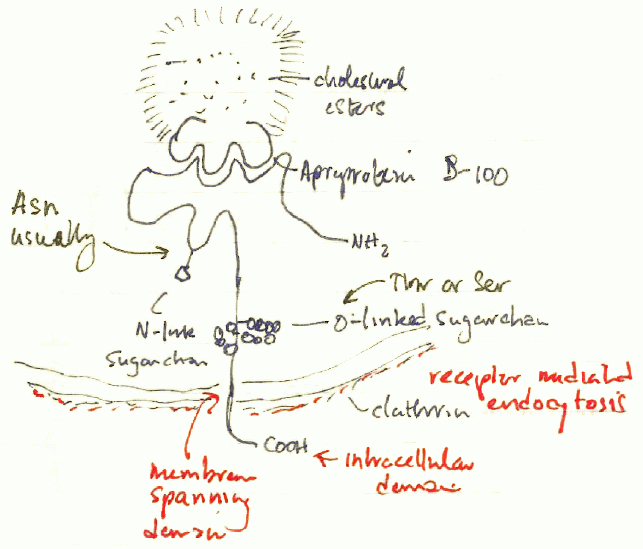 cholesterol
esters
Apoprotein B-100
Asn
usually
NH2
Thr or Ser
O-linked sugarchain
N-link
sugarchain
receptor mediated
endocytosis
clathrin
COOH
intracellular
domain
membran
spanning
domain